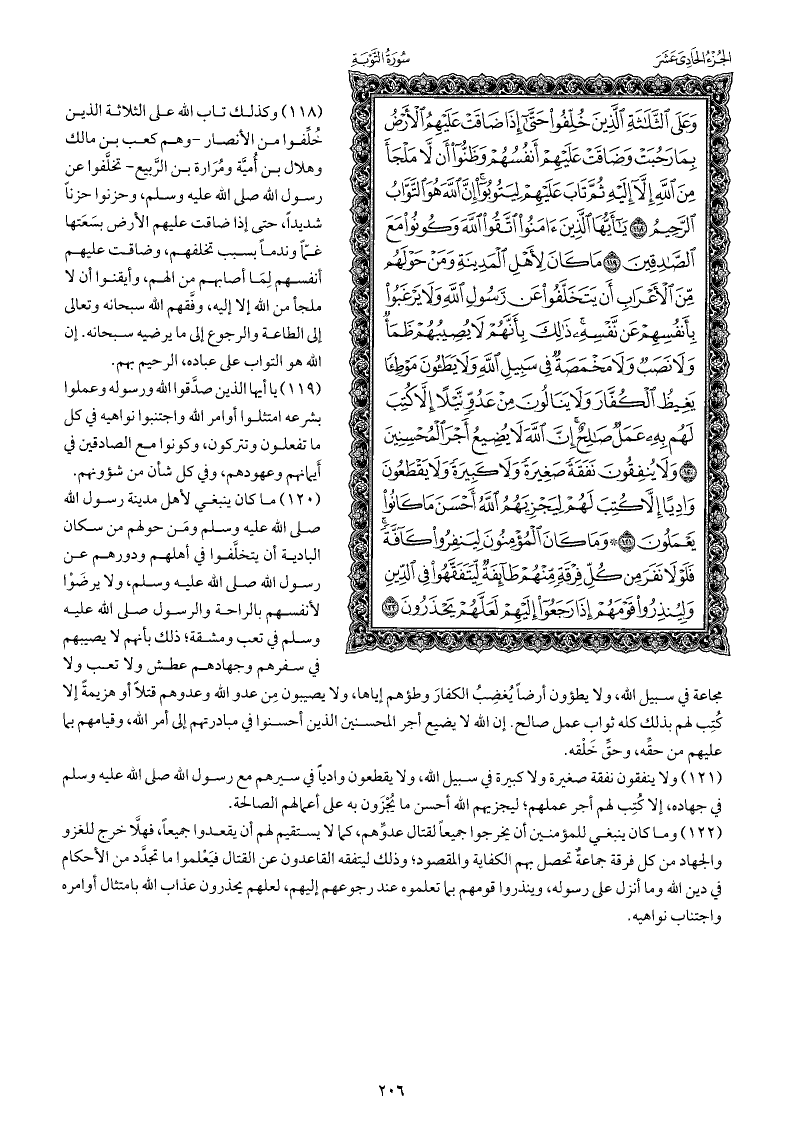 الجزء الحادي عشر
سورة التوبة
وَعَلَى ٱلثَّلَـٰثَةِ ٱلَّذِينَ خُلِّفُوا۟ حَتَّىٰٓ إِذَا ضَاقَتْ عَلَيْهِمُ ٱلْأَرْضُ
بِمَا رَحُبَتْ وَضَاقَتْ عَلَيْهِمْ أَنفُسُهُمْ وَظَنُّوٓا۟ أَن لَّا مَلْجَأَ
مِنَ ٱللَّهِ إِلَّآ إِلَيْهِ ثُمَّ تَابَ عَلَيْهِمْ لِيَتُوبُوٓا۟ ۚ إِنَّ ٱللَّهَ هُوَ ٱلتَّوَّابُ
ٱلرَّحِيمُ ١١٨ يَـٰٓأَيُّهَا ٱلَّذِينَ ءَامَنُوا۟ ٱتَّقُوا۟ ٱللَّهَ وَكُونُوا۟ مَعَ
ٱلصَّـٰدِقِينَ ١١٩ مَا كَانَ لِأَهْلِ ٱلْمَدِينَةِ وَمَنْ حَوْلَهُم
مِّنَ ٱلْأَعْرَابِ أَن يَتَخَلَّفُوا۟ عَن رَّسُولِ ٱللَّهِ وَلَا يَرْغَبُوا۟
بِأَنفُسِهِمْ عَن نَّفْسِهِۦ ۚ ذَٰلِكَ بِأَنَّهُمْ لَا يُصِيبُهُمْ ظَمَأٌ
وَلَا نَصَبٌ وَلَا مَخْمَصَةٌ فِى سَبِيلِ ٱللَّهِ وَلَا يَطَـُٔونَ مَوْطِئًا
يَغِيظُ ٱلْكُفَّارَ وَلَا يَنَالُونَ مِنْ عَدُوٍّ نَّيْلًا إِلَّا كُتِبَ
لَهُم بِهِۦ عَمَلٌ صَـٰلِحٌ ۚ إِنَّ ٱللَّهَ لَا يُضِيعُ أَجْرَ ٱلْمُحْسِنِينَ
١٢٠ وَلَا يُنفِقُونَ نَفَقَةً صَغِيرَةً وَلَا كَبِيرَةً وَلَا يَقْطَعُونَ
وَادِيًا إِلَّا كُتِبَ لَهُمْ لِيَجْزِيَهُمُ ٱللَّهُ أَحْسَنَ مَا كَانُوا۟
يَعْمَلُونَ ١٢١ ۞ وَمَا كَانَ ٱلْمُؤْمِنُونَ لِيَنفِرُوا۟ كَآفَّةً ۚ
فَلَوْلَا نَفَرَ مِن كُلِّ فِرْقَةٍ مِّنْهُمْ طَآئِفَةٌ لِّيَتَفَقَّهُوا۟ فِى ٱلدِّينِ
وَلِيُنذِرُوا۟ قَوْمَهُمْ إِذَا رَجَعُوٓا۟ إِلَيْهِمْ لَعَلَّهُمْ يَحْذَرُونَ ١٢٢
(١١٨) وكذلك تاب الله على الثلاثة الذين
خُلِّفوا من الأنصار -وهم كعب بن مالك
وهلال بن أُميَّة ومُرَارة بن الرَّبيع- تخلَّفوا عن
رسول الله صلى الله عليه وسلم، وحزنوا حزناً
شديداً، حتى إذا ضاقت عليهم الأرض بسَعَتها
غمّاً وندماً بسبب تخلفهم، وضاقت عليهم
أنفسهم لِمَا أصابهم من الهم، وأيقنوا أن لا
ملجأ من الله إلا إليه، وفَّقهم الله سبحانه وتعالى
إلى الطاعة والرجوع إلى ما يرضيه سبحانه. إن
الله هو التواب على عباده، الرحيم بهم.
(١١٩) يا أيها الذين صدَّقوا الله ورسوله وعملوا
بشرعه امتثلوا أوامر الله واجتنبوا نواهيه في كل
ما تفعلون وتتركون، وكونوا مع الصادقين في
أيمانهم وعهودهم، وفي كل شأن من شؤونهم.
(١٢٠) ما كان ينبغي لأهل مدينة رسول الله
صلى الله عليه وسلم ومَن حولهم من سكان
البادية أن يتخلَّفوا في أهلهم ودورهم عن
رسول الله صلى الله عليه وسلم، ولا يرضَوْا
لأنفسهم بالراحة والرسول صلى الله عليه
وسلم في تعب ومشقة؛ ذلك بأنهم لا يصيبهم
في سفرهم وجهادهم عطش ولا تعب ولا
مجاعة في سبيل الله، ولا يطؤون أرضاً يُغضِبُ الكفارَ وطؤهم إياها، ولا يصيبون مِن عدو الله وعدوهم قتلاً أو هزيمةً إلا
كُتِب لهم بذلك كله ثواب عمل صالح. إن الله لا يضيع أجر المحسنين الذين أحسنوا في مبادرتهم إلى أمر الله، وقيامهم بما
عليهم من حقِّه، وحقِّ خَلْقه.
(١٢١) ولا ينفقون نفقة صغيرة ولا كبيرة في سبيل الله، ولا يقطعون وادياً في سيرهم مع رسول الله صلى الله عليه وسلم
في جهاده، إلا كُتِب لهم أجر عملهم؛ ليجزيهم الله أحسن ما يُجْزَون به على أعمالهم الصالحة.
(١٢٢) وما كان ينبغي للمؤمنين أن يخرجوا جميعاً لقتال عدوِّهم، كما لا يستقيم لهم أن يقعدوا جميعاً، فهلَّا خرج للغزو
والجهاد من كل فرقة جماعةٌ تحصل بهم الكفاية والمقصود؛ وذلك ليتفقه القاعدون عن القتال فيَعْلموا ما تجدَّد من الأحكام
في دين الله وما أنزل على رسوله، وينذروا قومهم بما تعلموه عند رجوعهم إليهم، لعلهم يحذرون عذاب الله بامتثال أوامره
واجتناب نواهيه.
٢٠٦